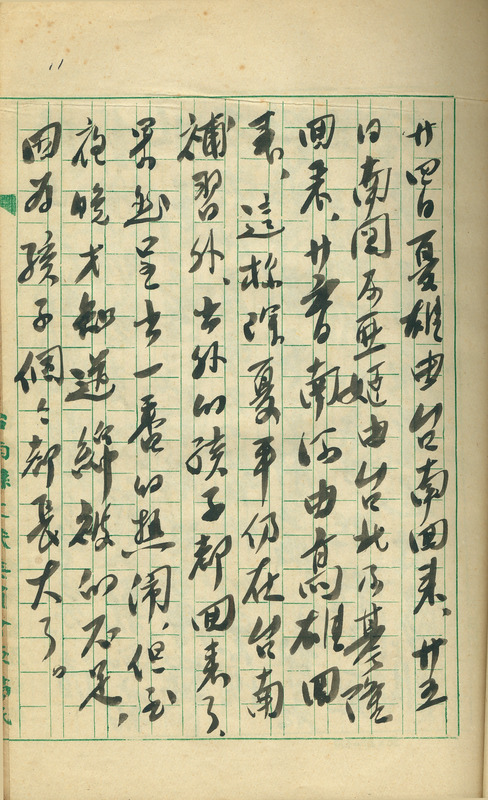 11
廿四日夏雄由台南回來、廿五
日南圖及亞姬由台北及基隆
回來、廿日南河由高雄回
來、這樣除夏平仍在台南
補習外、出外的孩子都回來了、
果然呈出一番的熱鬧、但到
夜晚才知道綿被的不足、
因為孩子個々都長大了。